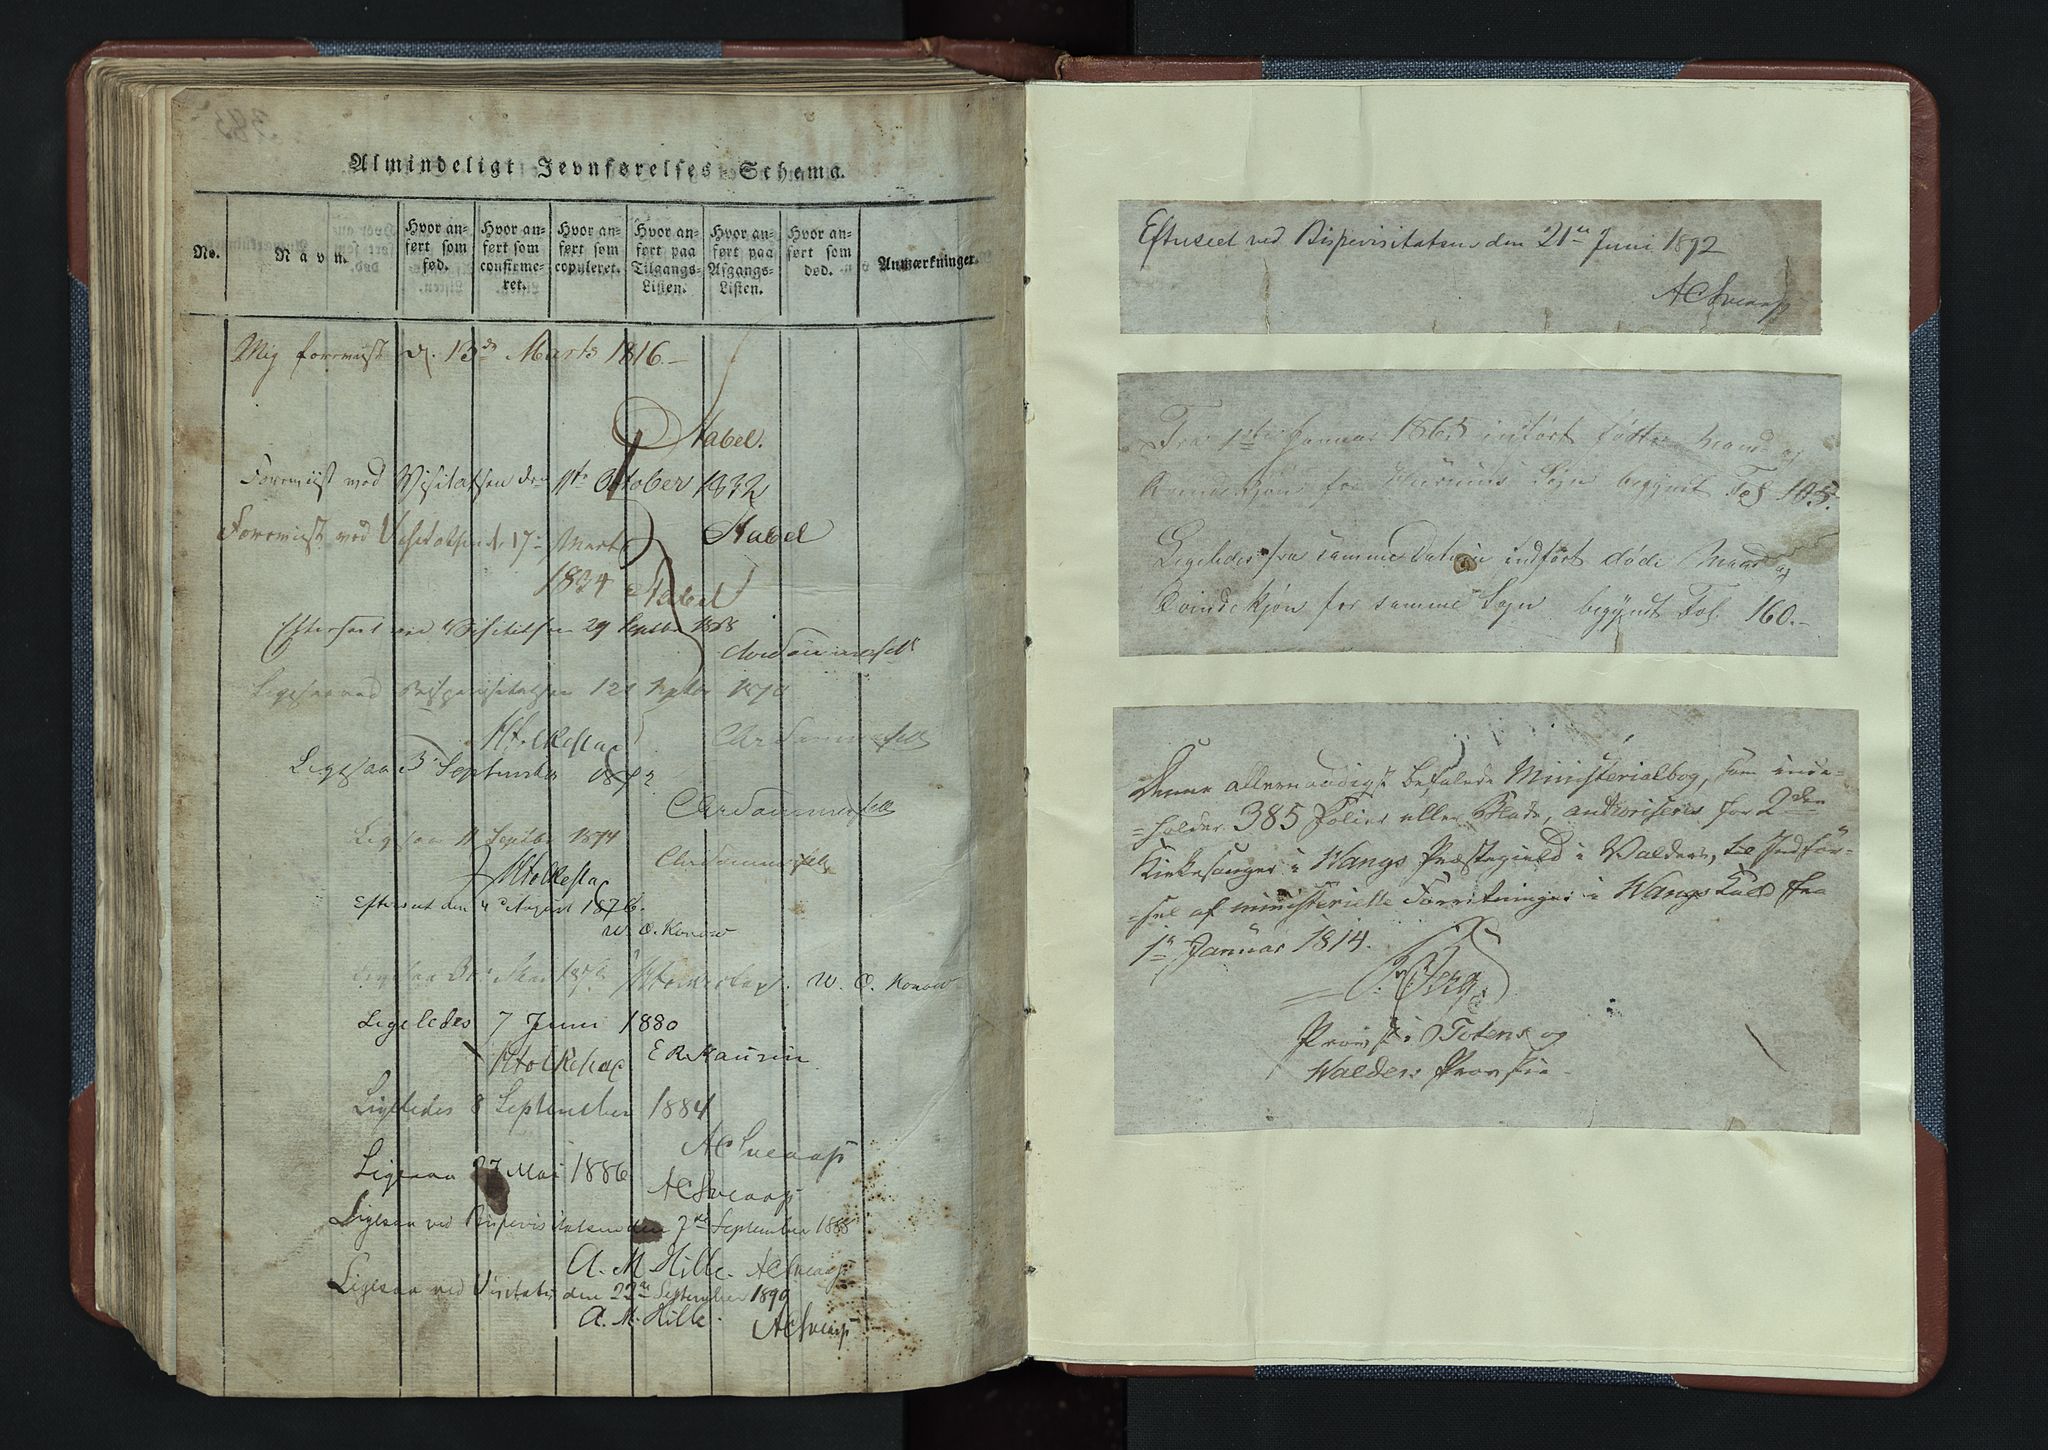 Almindeligt Jevnførelses-Schema.
No.
Navn.
Hvor anført som fød.
Hvor anført som confirmeret.
Hvor anført som copuleret.
Hvor anført paa Tilgangs-Listen.
Hvor anført paa Afgangs-Listen.
Hvor anført som død.
Anmærkninger.
Mig foreviist d. 13de Marts 1816.
Stabel.
Foreviist ved Visitatsen den 1ste October 1832
Stabel
Foreviist ved Visitatsen d. 17 Marts
1834 Stabel
Efterseet ved Visitatsen 29 Septbr
Ligesaa ved Bispevisitatsen 1870
Ligesaa 3 September 1872
Ligesaa 11 Septbr 1874
Efterseet den August 1876.
W. O. Konow
Ligesaa W. O. Konow
Ligeledes 7 Juni 1880
Ligeledes 8 September 1884
ACSveaas
Ligesaa 27 Mai 1886
ACSveaas
Ligesaa ved Bispevisitatsen den 7de September 1888
A. M. Hille. ACSveaas
Ligesaa ved Visitats den 22de September 1890
A. M. Hille. ACSveaas
Efterseet ved Bispevisitatsen den 21de Juni 1892
ACSveaas
Fra 1ste Januar 1865 indført fødte Mand- og
Qvindekjøn for Hurums Sogn begyndt Fol 105.
Ligeledes fra samme Datum indført døde Mand og
Qvindekjøn for samme Sogn begyndt Fol. 160.-
Denne allernaadigst befalede Ministerialbog, som inde-
=holder 385 Folier eller Blade, authoriseres for 2den
Kirkesanger i Wangs Præstegield i Valders, til Indfør-
=sel af ministerielle Forretninger i Wangs Kald fra
1n Januar 1814.
Berg.
Provst i Totens og
Walders Provstie